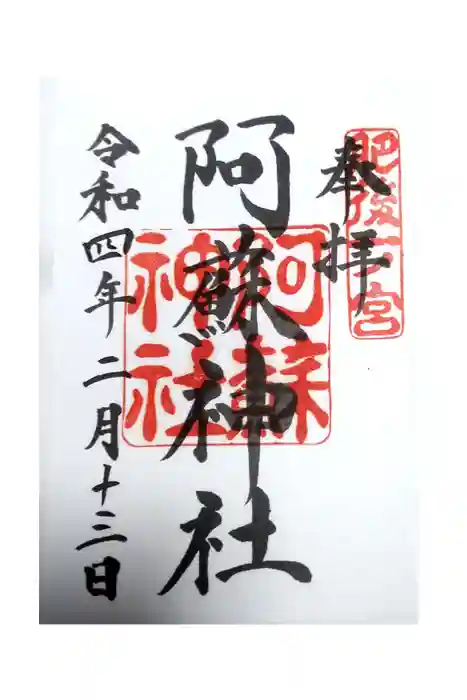 奉拝
肥後一宮
阿蘇神社
阿蘇神社
令和四年二月十三日